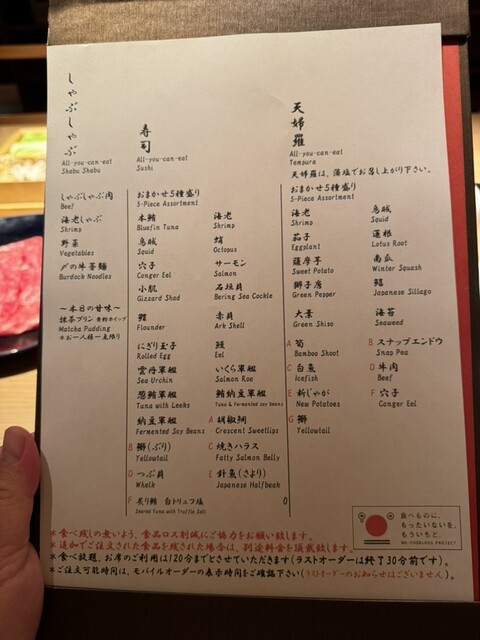 しゃぶしゃぶ
All-you-can-eat
Shabu Shabu
しゃぶしゃぶ肉
Beef
海老しゃぶ
Shrimp
野菜
Vegetables
〆の牛蒡麺
Burdock Noodles
～本日の甘味～
抹茶プリン 黄粉ホイップ
Matcha Pudding
※お一人様一点限り
寿司
All-you-can-eat
Sushi
おまかせ5種盛り
5-Piece Assortment
本鮪
Bluefin Tuna
海老
Shrimp
烏賊
Squid
蛸
Octopus
穴子
Conger Eel
サーモン
Salmon
小肌
Gizzard Shad
石垣貝
Bering Sea Cockle
鰈
Flounder
赤貝
Ark Shell
にぎり玉子
Rolled Egg
鰻
Eel
雲丹軍艦
Sea Urchin
いくら軍艦
Salmon Roe
葱鮪軍艦
Tuna with Leeks
鮪納豆軍艦
Tuna & Fermented soy beans
納豆軍艦
Fermented Soy Beans
A 胡椒鯛
Crescent Sweetlips
B 鰤(ぶり)
Yellowtail
C 焼きハラス
Fatty Salmon Belly
D つぶ貝
Whelk
E 針魚(さより)
Japanese Halfbeak
F 炙り鮪 白トリュフ塩
Seared Tuna with Truffle Salt
0
天婦羅
All-you-can-eat
Tempura
天婦羅は、藻塩でお召し上がり下さい。
おまかせ5種盛り
5-Piece Assortment
海老
Shrimp
烏賊
Squid
茄子
Eggplant
蓮根
Lotus Root
薩摩芋
Sweet Potato
南瓜
Winter Squash
獅子唐
Green Pepper
鱚
Japanese Sillago
大葉
Green Shiso
海苔
Seaweed
A 筍
Bamboo Shoot
B スナップエンドウ
Snap Pea
C 白魚
Icefish
D 牛肉
Beef
E 新じゃが
New Potatoes
F 穴子
Conger Eel
G 鰤
Yellowtail
食べものに、
もったいないを、
もういちど。
NO-FOODLOSS PROJECT
※食べ残しの無いよう、食品ロス削減にご協力をお願い致します。
※追加でご注文された食品を残された場合は、別途料金を頂戴致します。
※食べ放題、お席のご利用は120分までとさせていただきます(ラストオーダーは終了30分前です)。
※ご注文可能時間は、モバイルオーダーの表示時間をご確認下さい(ラストオーダーのお知らせはございません)。